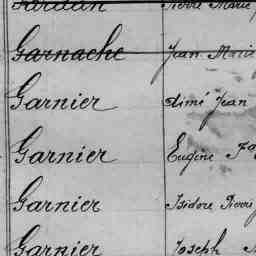 Jordan Pierre Marie
Garnache Jean Marie
Garnier Aimé Jean
Garnier Eugène
Garnier Isidore Pierre
Garnier Joseph